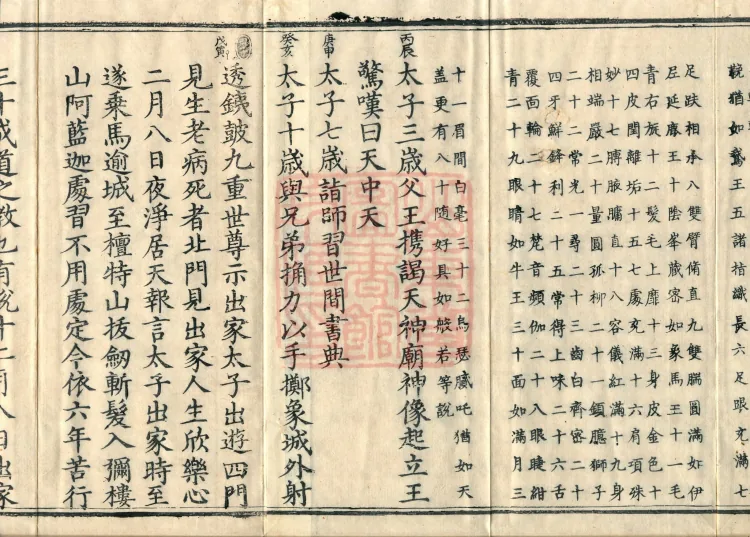 猶如鵞王五諸指纖長六足跟充滿七
足趺相承八雙臂脩直九雙腨圓滿如伊
尼延鹿王十陰峯藏密如象馬王十一毛
青右旋十二髮毛上靡十三身皮金色十
四皮閏離垢十五七處充滿十六肩項殊
妙十七膊腋臗直十八容儀紅滿十九身
相端嚴二十量圓狐柳二十一頷臆獅子
二十二常光一尋二十三齒白齊密二十
四牙鮮鋒利二十五常得上味二十六舌
覆面輪二十七梵音頻伽二十八眼睫紺
青二十九眼睛如牛王三十面如滿月三
十一眉間白毫三十二烏瑟膩吒猶如天
盖更有八十隨好具如般若等說
丙辰
太子三歲父王携謁天神廟神像起立王
驚嘆曰天中天
庚申
太子七歲詣師習世間書典
癸亥
太子十歲與兄弟捔力以手擲象城外射
戊寅
透鐵皷九重世尊示出家太子出遊四門
見生老病死者北門見出家人生欣樂心
二月八日夜淨居天報言太子出家時至
遂乘馬逾城至檀特山拔劒斬髮入彌樓
山阿藍迦處習不用處定今依六年苦行
三十成道之教也有説十二月八日出家